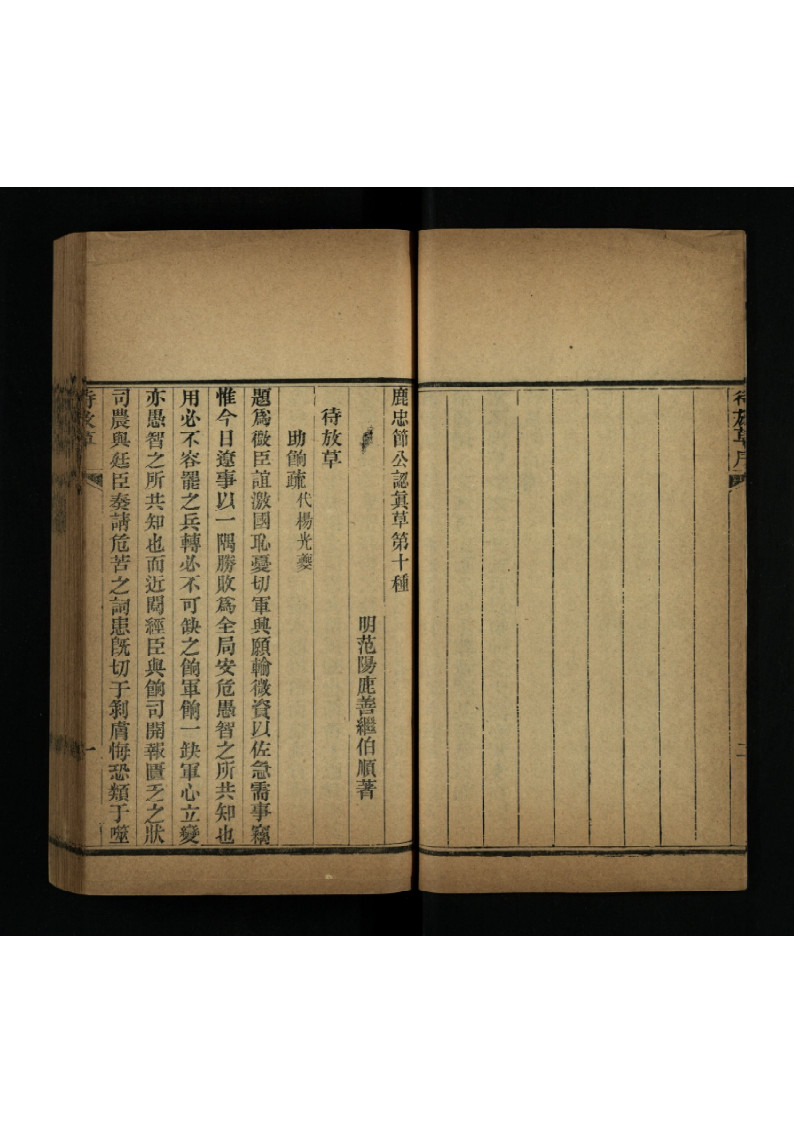 待放草序
二
鹿忠節公認眞草第十種
明范陽鹿善繼伯順著
待放草
助餉疏代楊光夔
題爲微臣誼激國恥憂切軍興願輸微資以佐急需事竊
惟今日遼事以一隅勝敗爲全局安危愚智之所共知也
用必不容罷之兵轉必不可缺之餉軍餉一缺軍心立變
亦愚智之所共知也而近閱經臣與餉司開報匱乏之狀
司農與廷臣奏請危苦之詞患旣切于剝膚悔恐類于噬
待放草
一